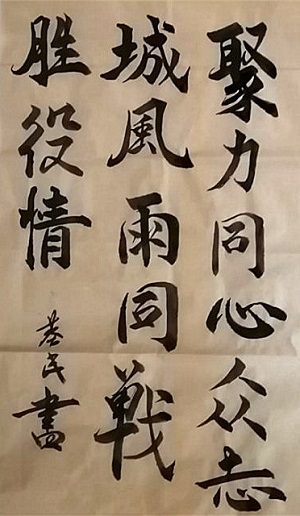 聚力同心众志
城風雨同戰
胜役情
民書